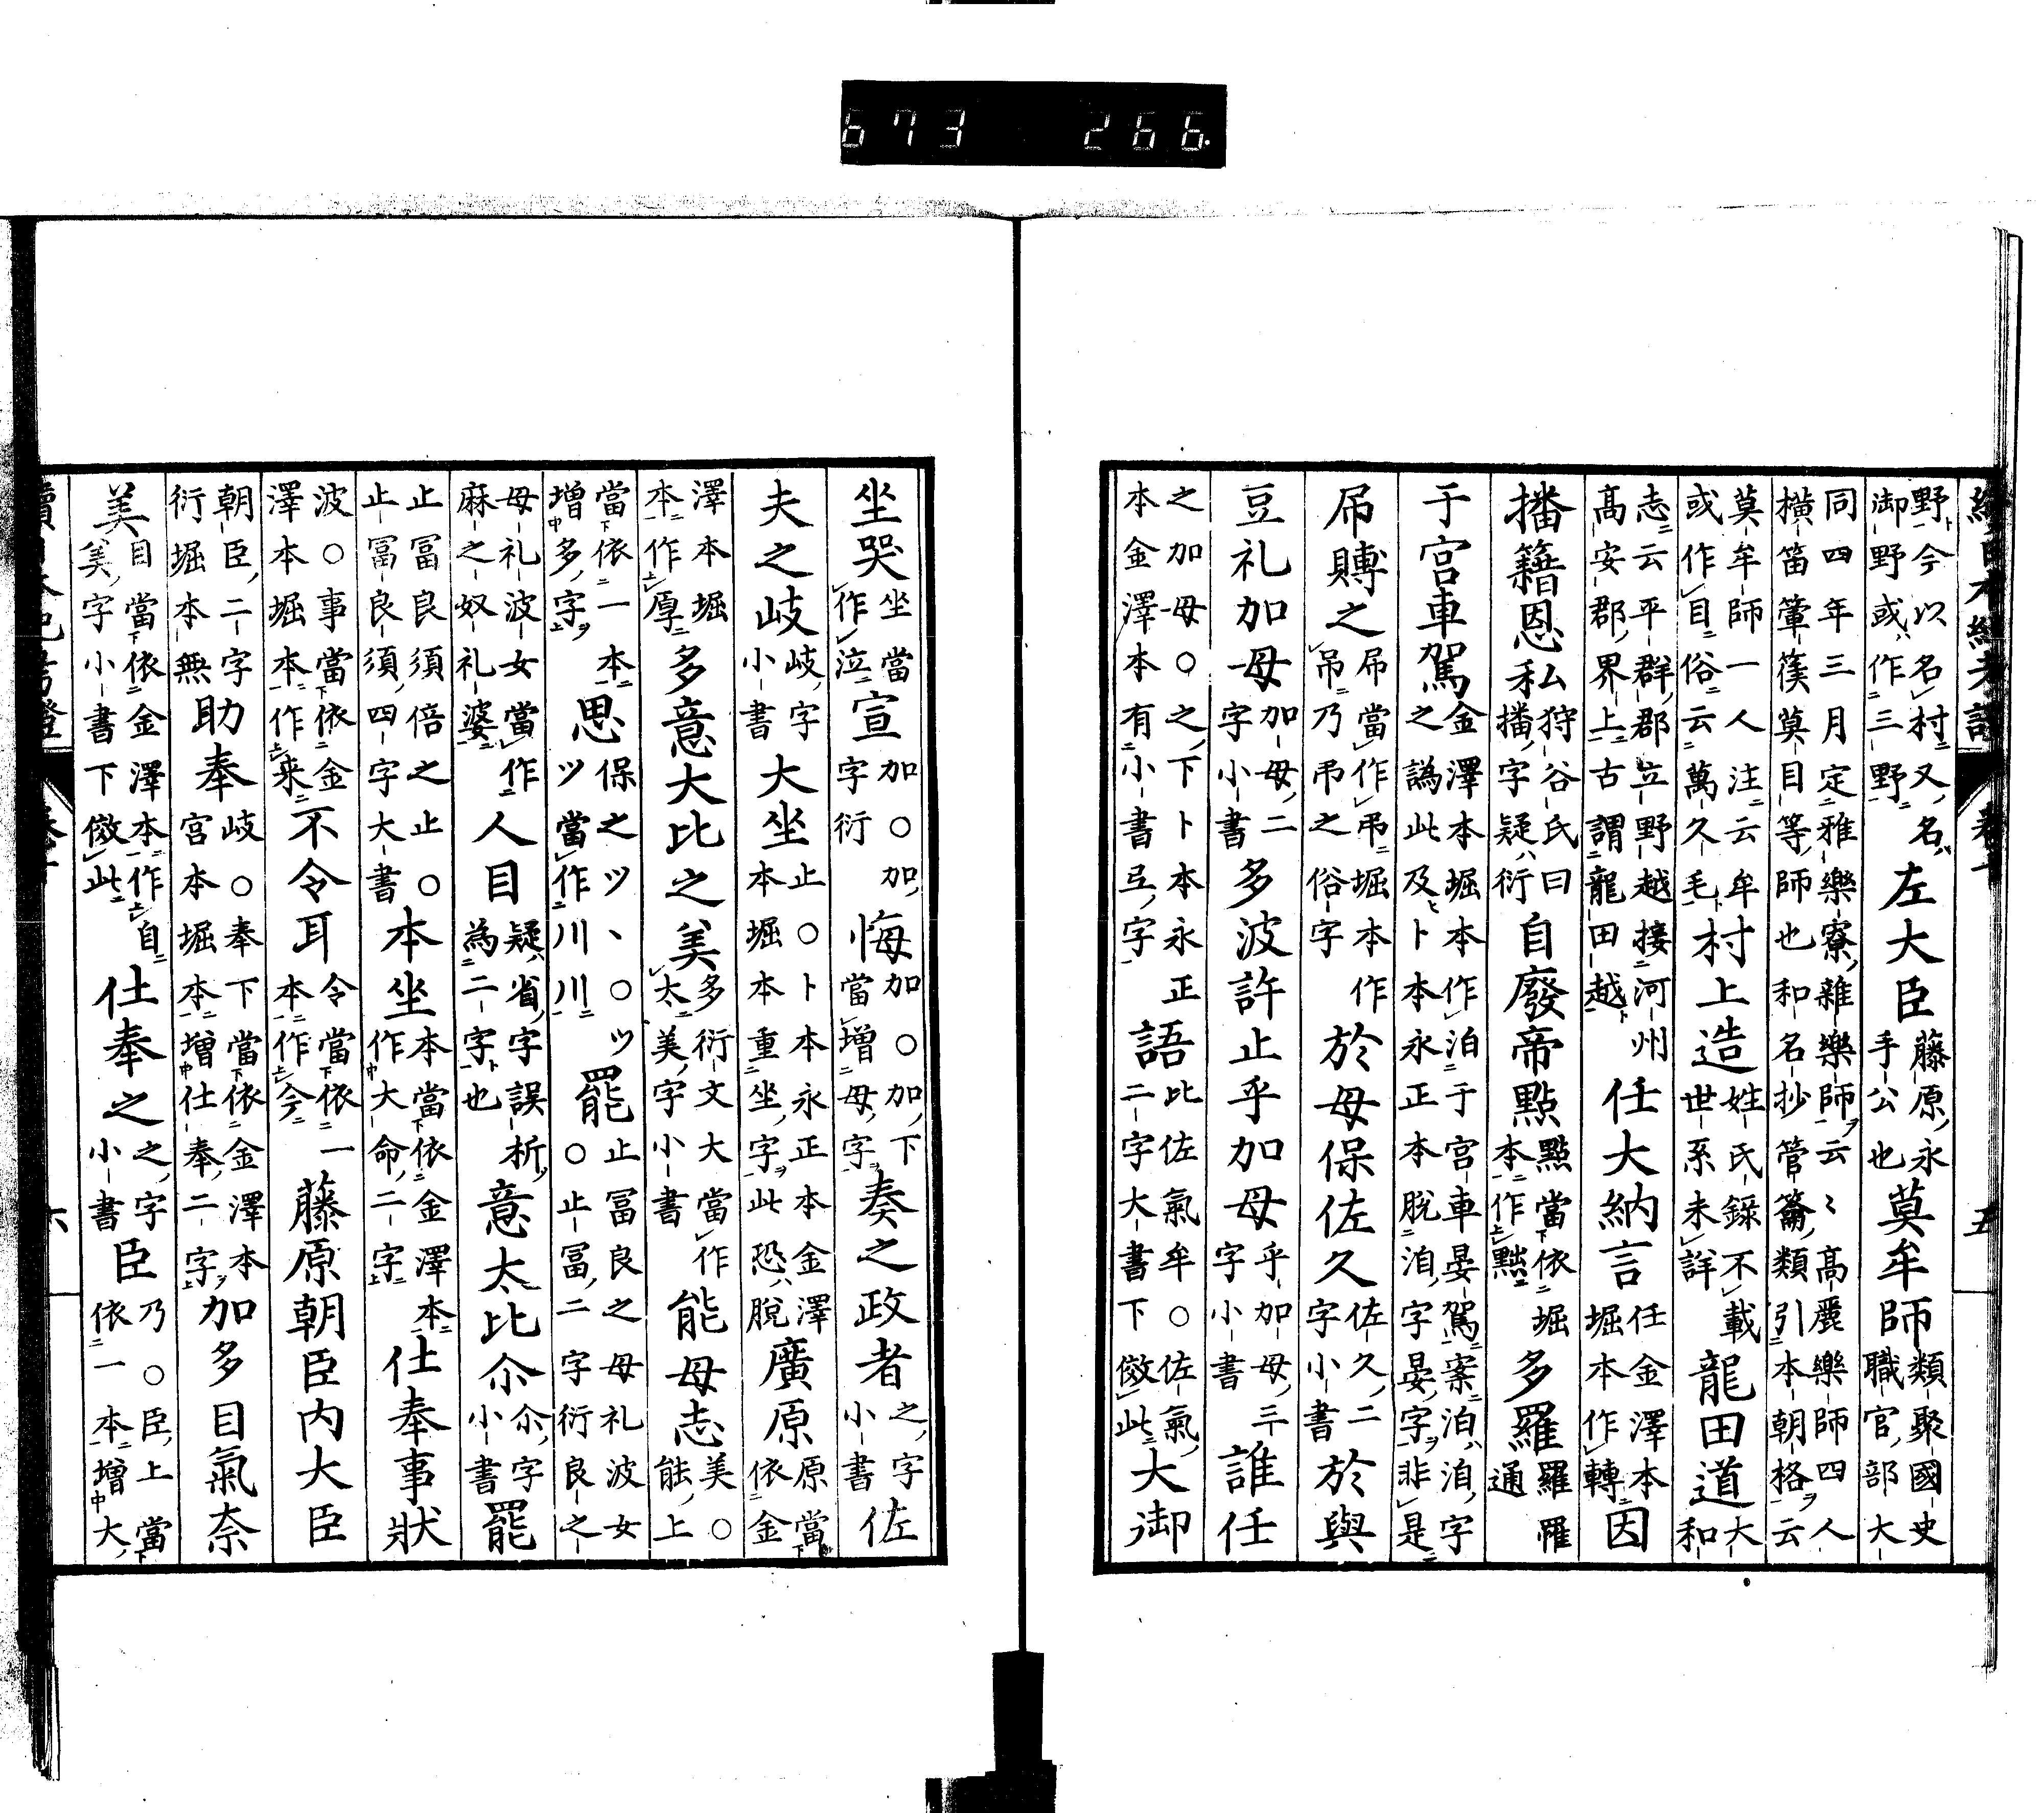 673 266.
野今以名村又名左大臣藤原永手公也莫牟師類聚國史職官部大
御野或作三野
同四年三月定雅樂寮雜樂師云〻高麗樂師四人
橫笛篳篌莫目等師也和名抄管籥類引本朝格云
莫牟師一人注云牟村上造姓氏錄不載龍田道大
或作目俗云萬久毛世系未詳和
志云平群郡立野越接河州任大納言任金澤本因
高安郡界上古謂龍田越堀本作轉
播籍恩私狩谷氏曰播字疑衍自廢帝點點當依堀本作黠多羅羅羅通
于宮車駕金澤本堀本作洎于宮車晏駕案泊洎字
之譌此及卜本永正本脫洎字晏字非是
吊賻之吊當作弔堀本作吊乃弔之俗字於母保佐久佐久二字小書於與
豆礼加母加母二字小書多波許止乎加母乎加母三字小書誰任
之加母○之下卜本永正語比佐氣牟○佐氣大御
本金澤本有小書弖字二字大書下傚此
五
坐哭坐當作泣宣加○加字衍悔加○加下當增母字奏之政者之字小書佐
夫之岐岐字小書大坐止○卜本永正本金澤本堀本重坐字此恐脫廣原原當依金
澤本堀本作厚多意大比之美多衍文大當作太美字小書能母志美○能上
當依一本增多字思保之ツ丶○ツツ當作川川罷止冨良之母礼波女○止冨二字衍良之
母礼波女當作麻之奴礼婆人目疑省字誤析為二字也意太比尒尒字小書罷
止冨良須倍之止○止冨良須四字大書本坐本當依金澤本作大命二字仕奉事狀
波○事當依金澤本堀本作来不令耳令當依一本作今藤原朝臣内大臣
朝臣二字衍堀本無助奉岐○奉下當依金澤本宮本堀本增仕奉二字加多目氣奈
美目當依金澤本作自美字小書下傚此仕奉之之字小書臣乃○臣上當依一本增大
六